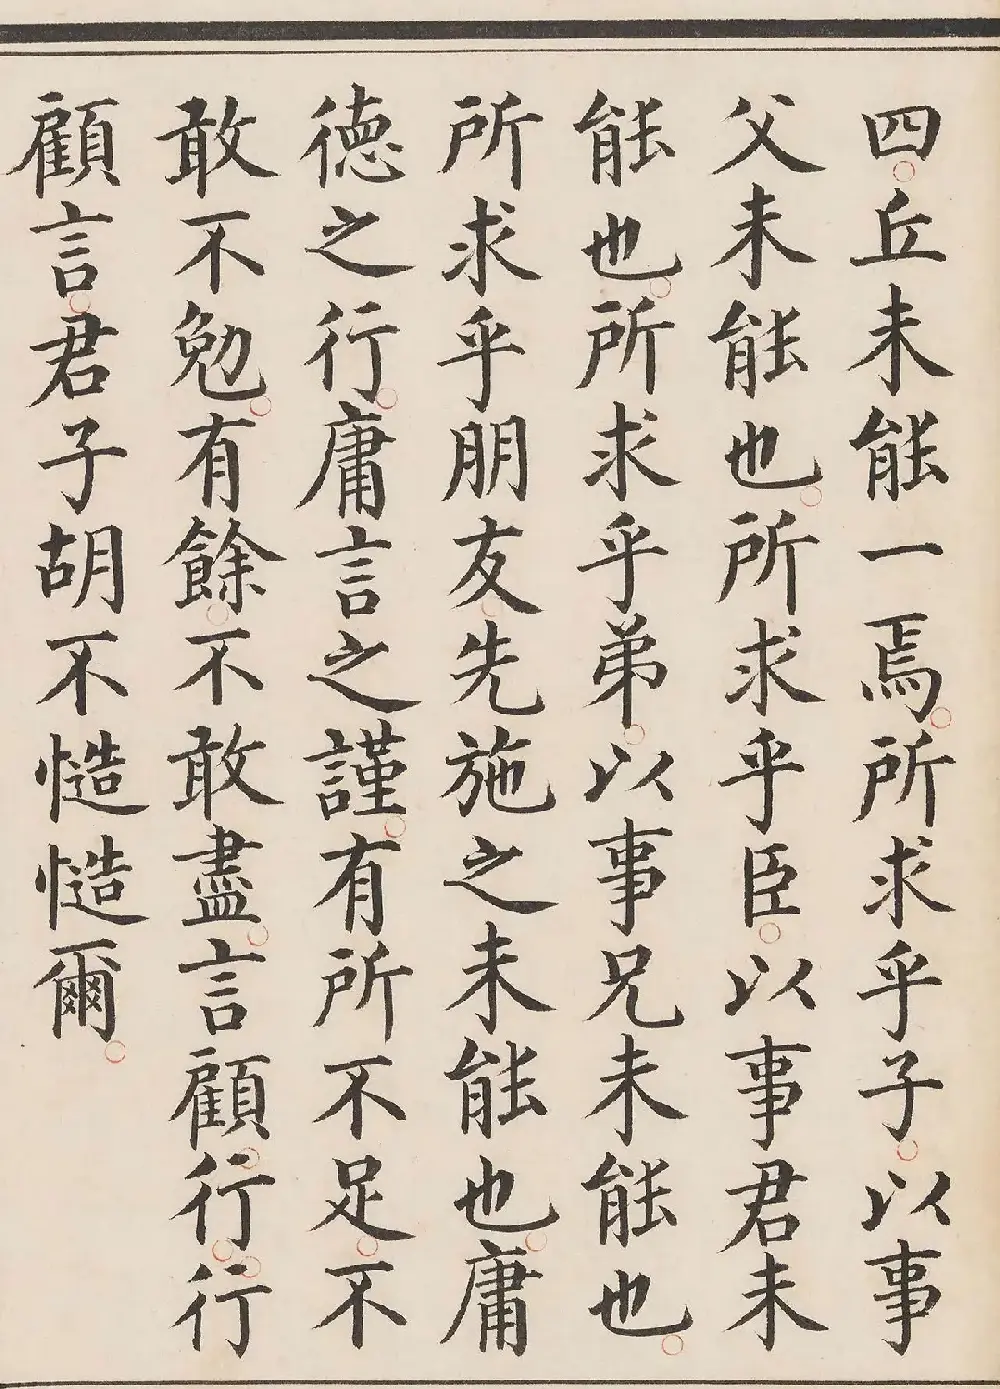 四丘未能一焉所求乎子以事
父未能也所求乎臣以事君未
能也所求乎弟以事兄未能也
所求乎朋友先施之未能也庸
德之行庸言之謹有所不足不
敢不勉有餘不敢盡言顧行行
顧言君子胡不慥慥爾